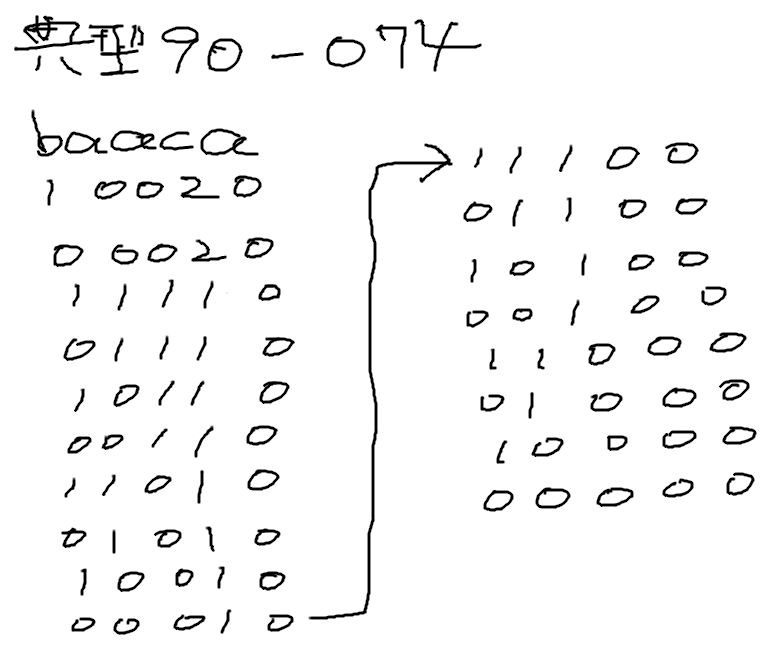 典型90-074
baaca
1 0 0 2 0
0 0 0 2 0
1 1 1 1 0
0 1 1 1 0
1 0 1 1 0
0 0 1 1 0
1 1 0 1 0
0 1 0 1 0
1 0 0 1 0
0 0 0 1 0
1 1 1 0 0
0 1 1 0 0
1 0 1 0 0
0 0 1 0 0
1 1 0 0 0
0 1 0 0 0
1 0 0 0 0
0 0 0 0 0